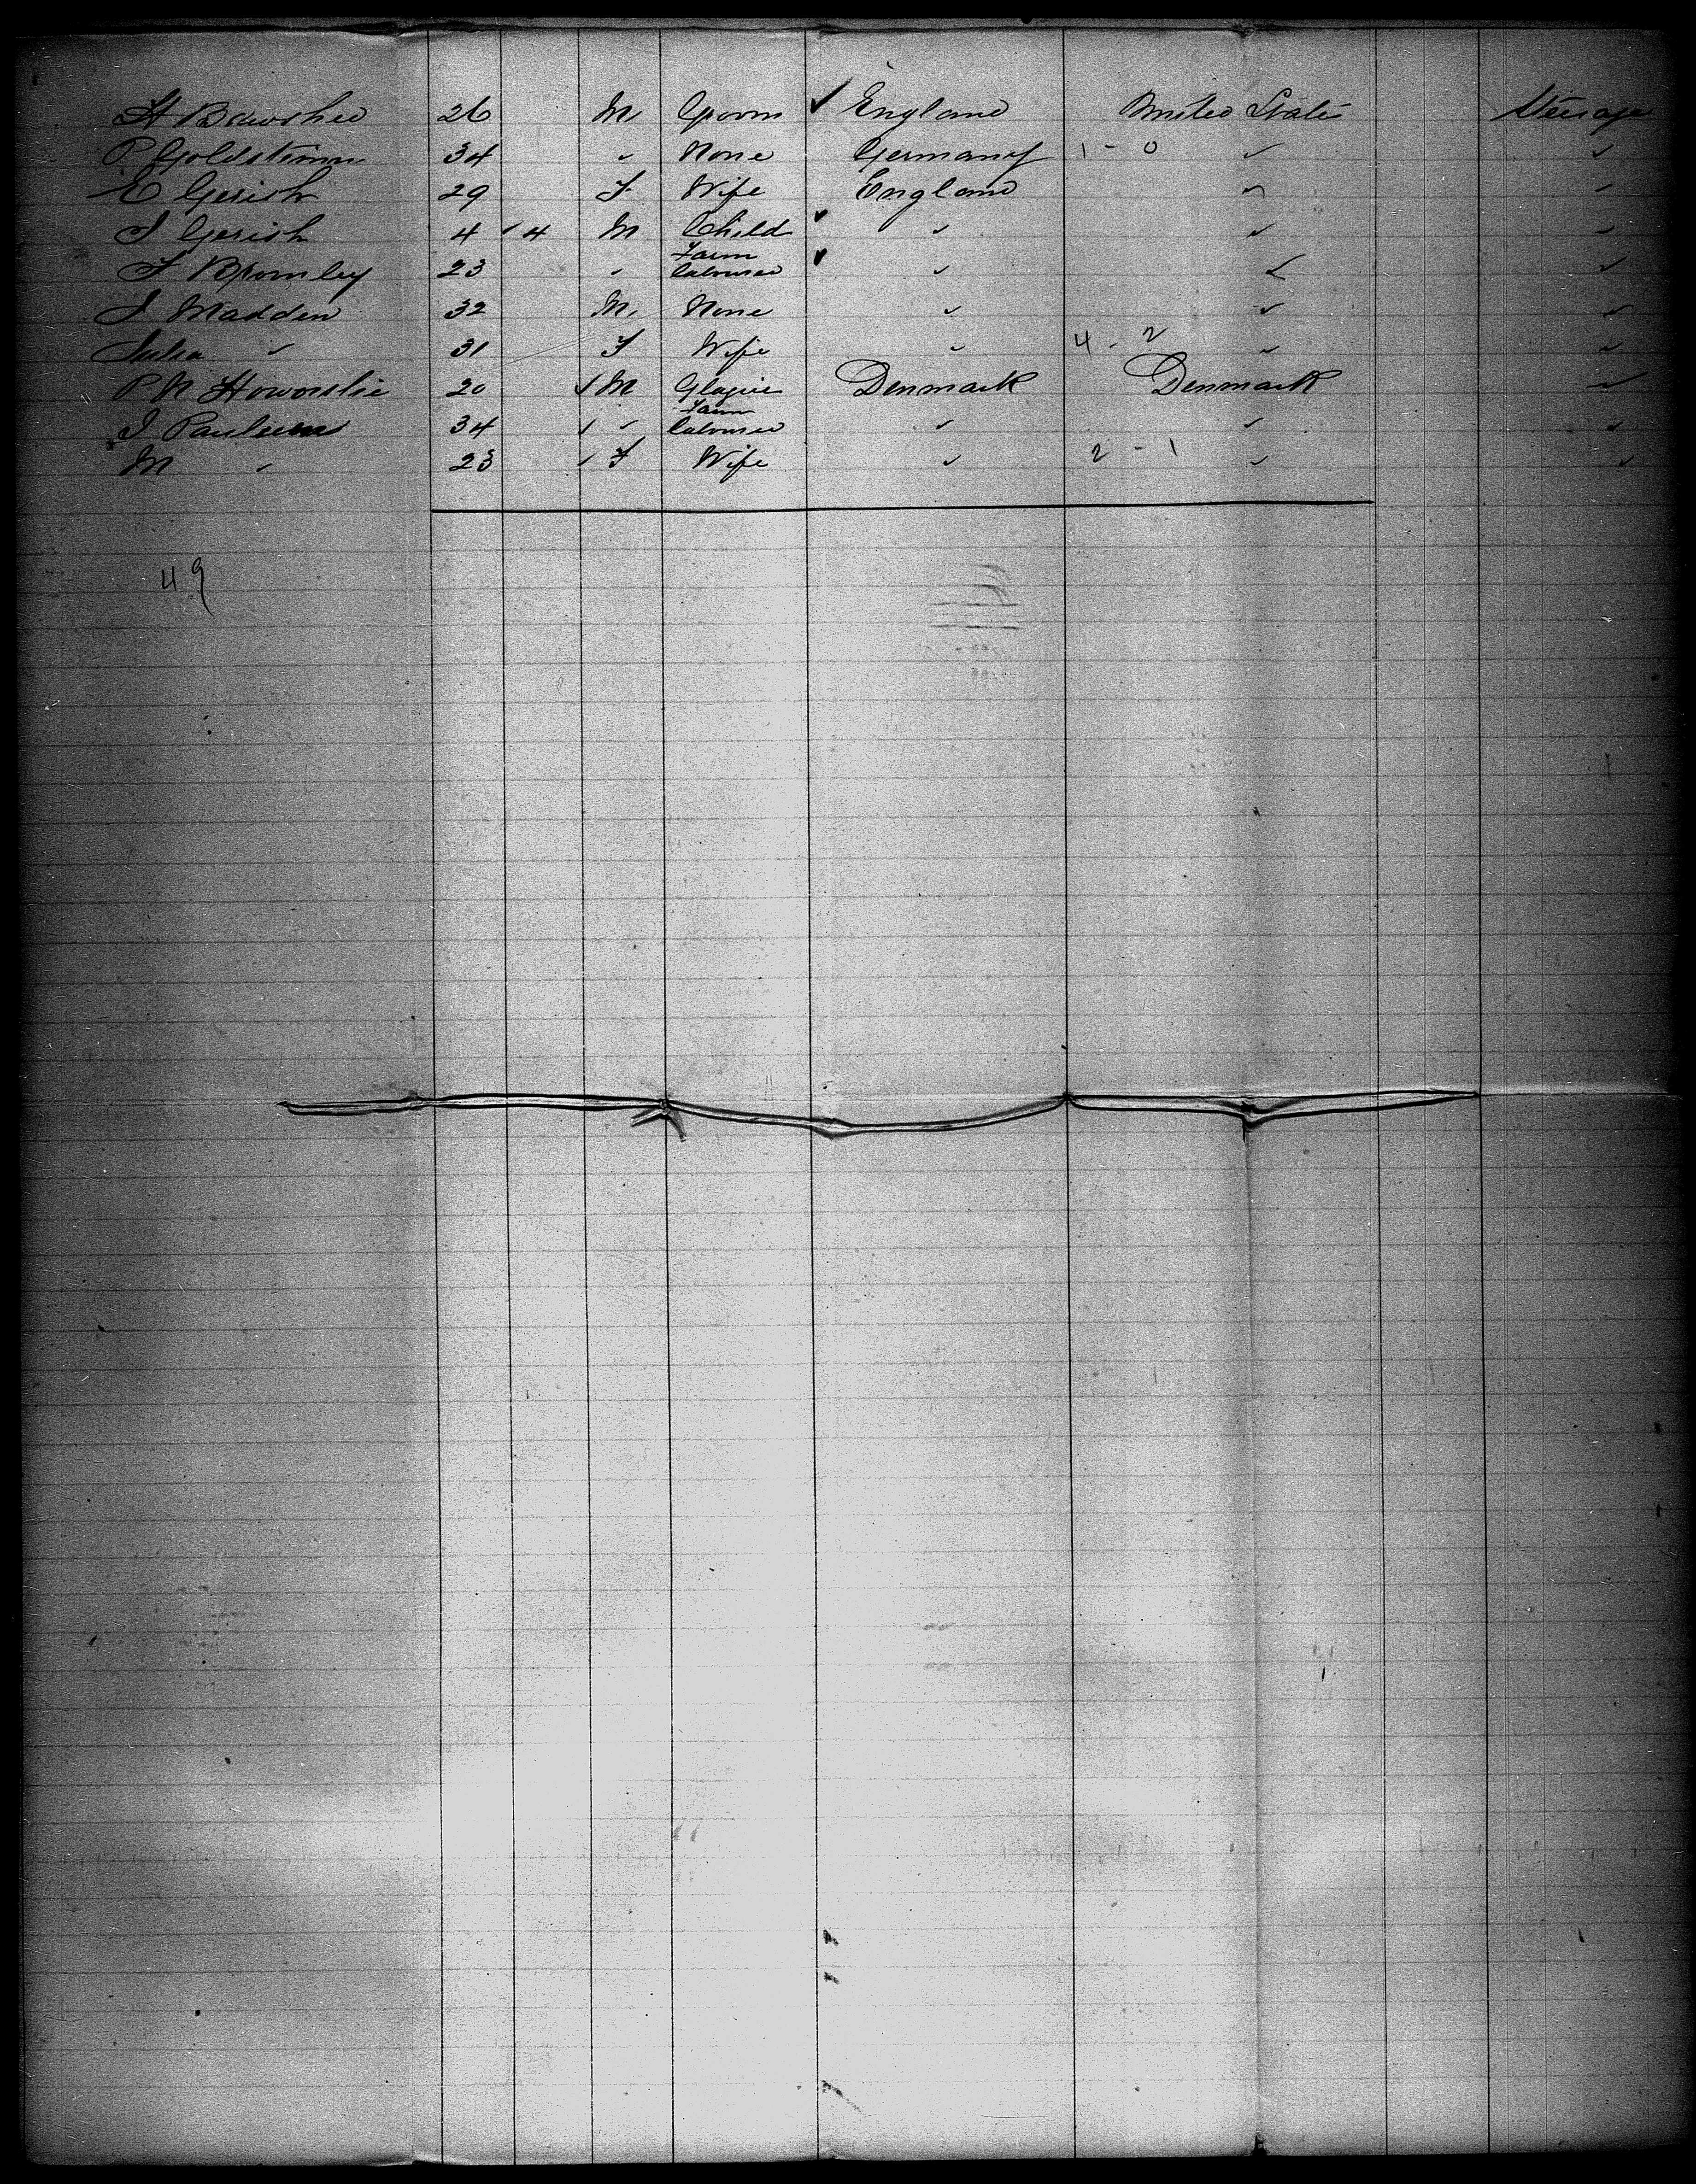 H 26 M Groom ✓ England United States Steerage
P Goldstein 34 " None Germany 1 - 0 " "
E Gerish 29 F Wife England " "
J Gerish 4 4 M Child " " "
F Bromley 23 " Farm Labourer " " "
J Madden 32 M None " " "
Julia " 31 F Wife " 4 - 2 " "
P N 20 M Glazier Denmark Denmark "
J Paulsen 34 " Farm Labourer " " "
M " 23 F Wife " 2 - 1 " "
49